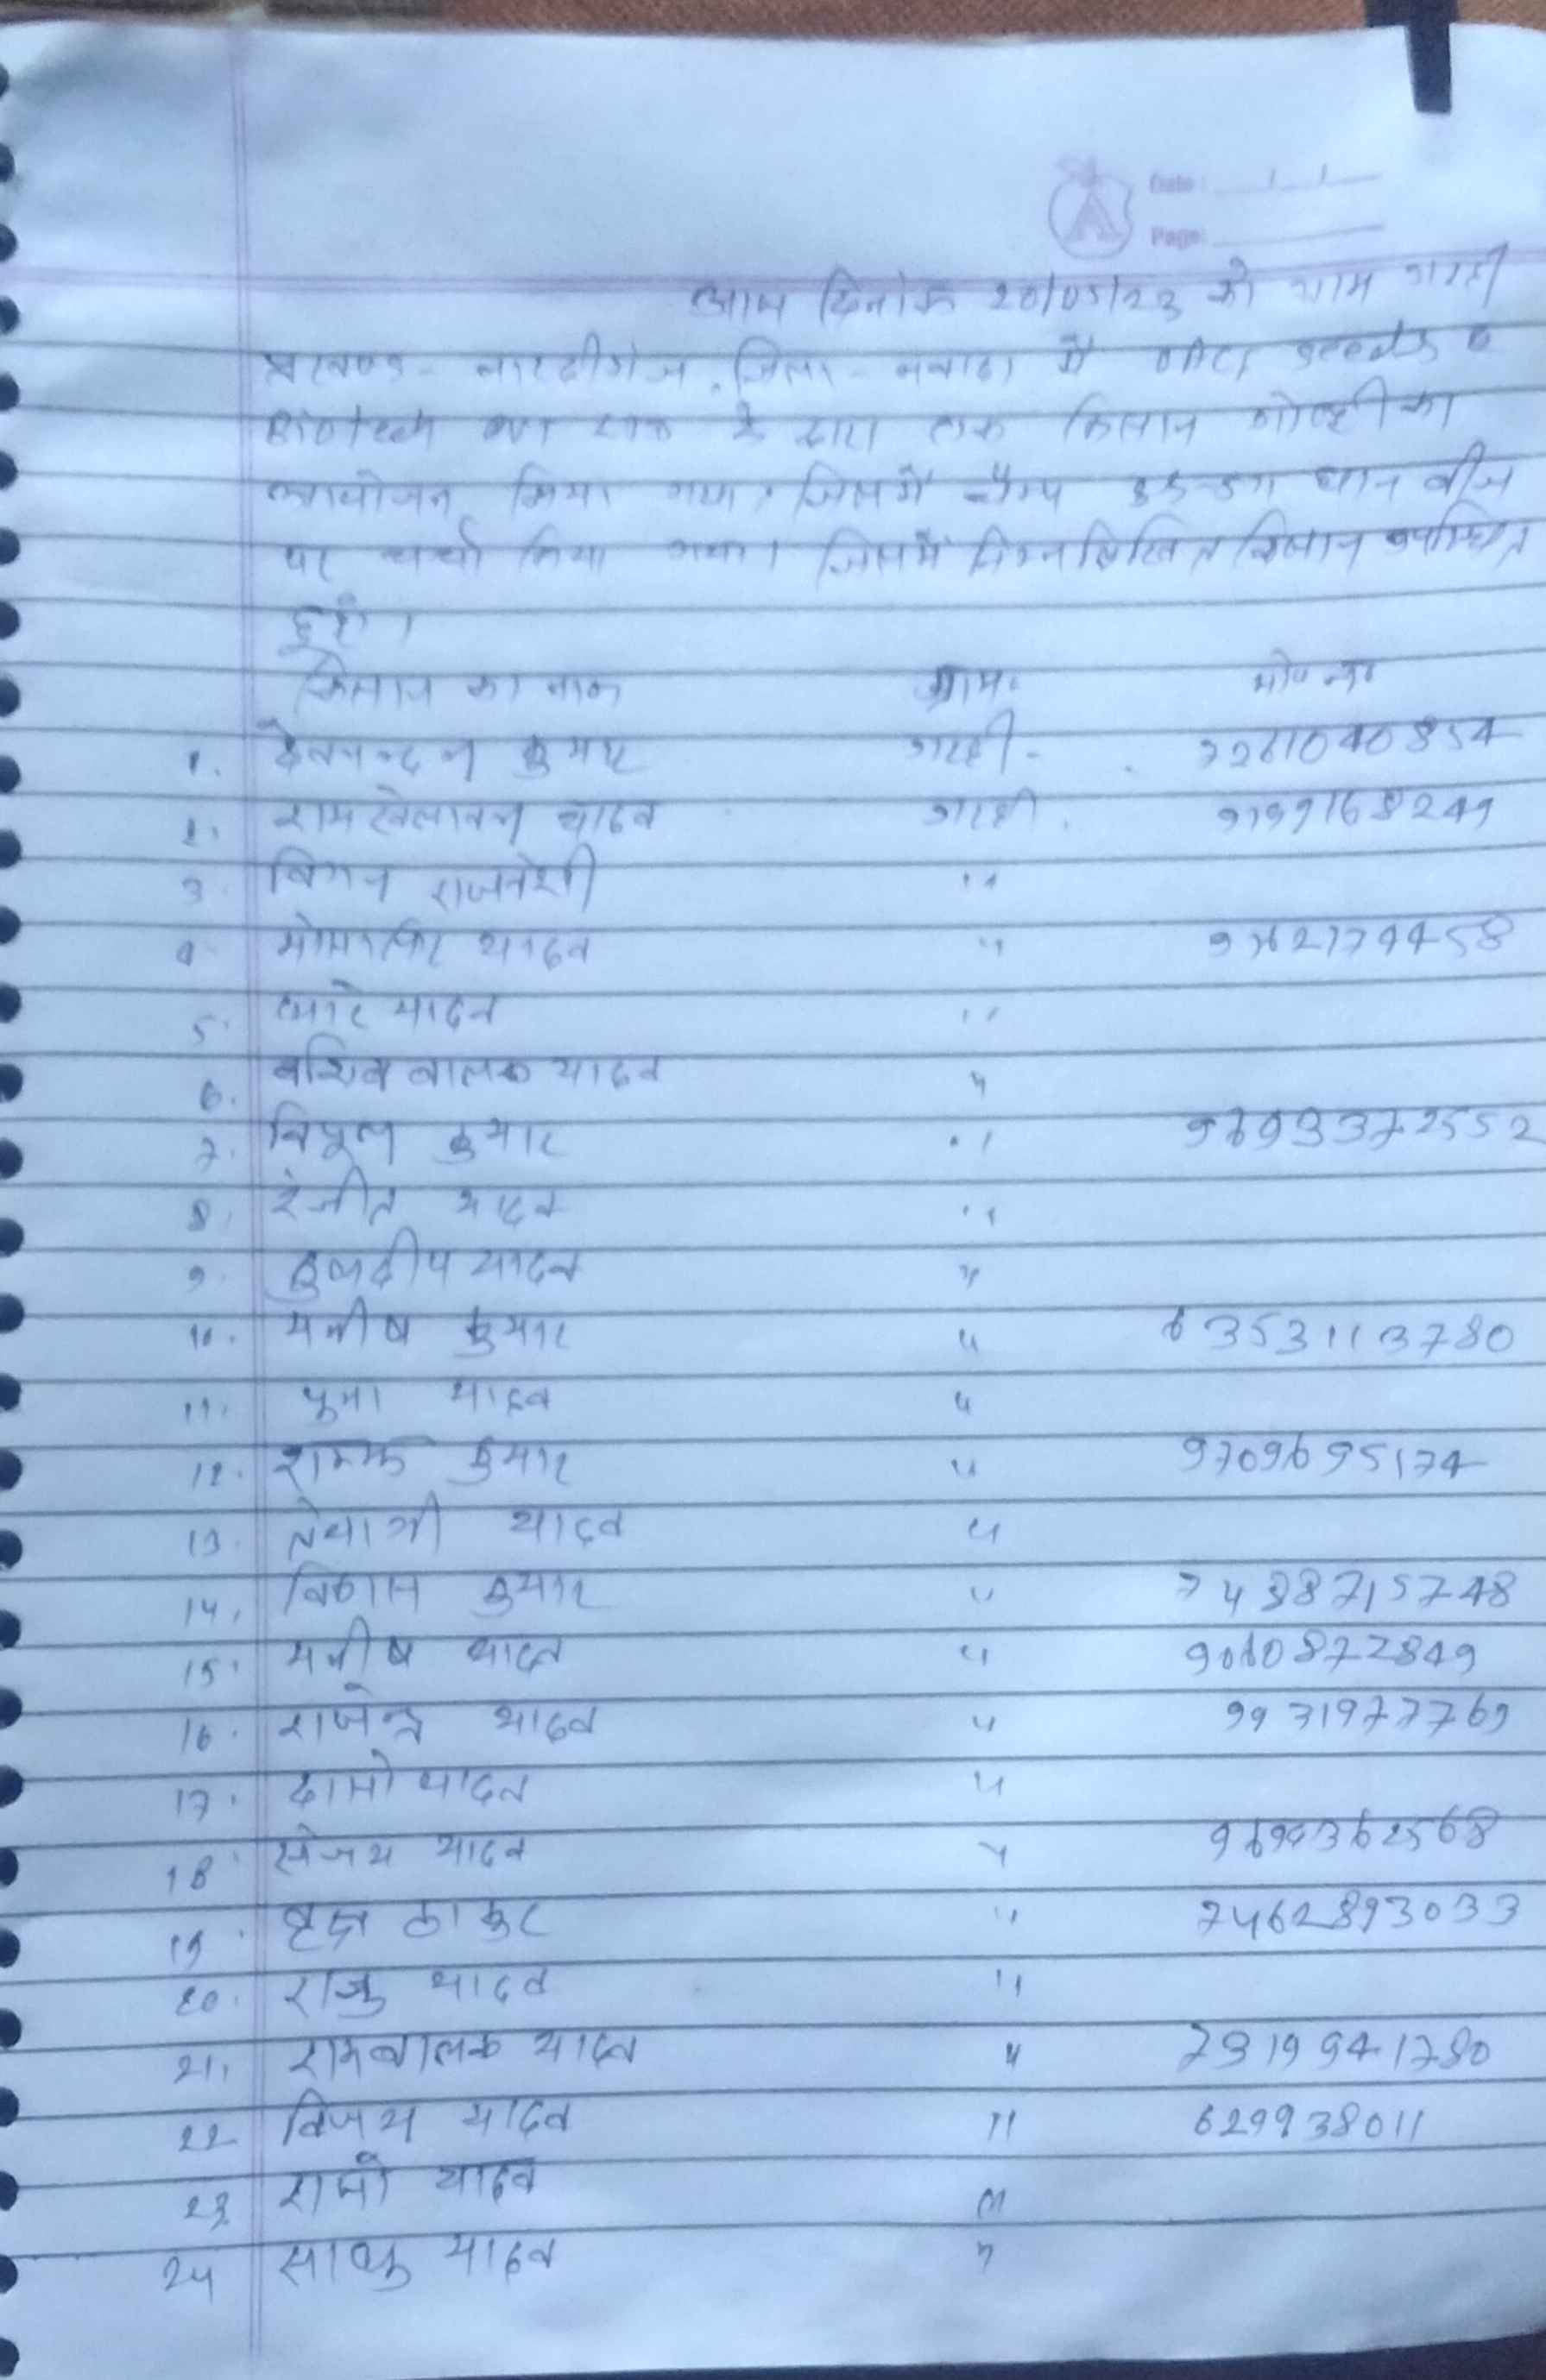 Date
Page
आज दिनांक 20/05/23 को ग्राम गारही
प्रखण्ड - नारदीगंज, जिला - नवादा में seeds
Biotech के द्वारा एक किसान गोष्ठी का
आयोजन किया गया। जिसमें धान बीज
पर चर्चा किया गया। जिसमें निम्नलिखित किसान उपस्थित
हुए।
किसान का नाम ग्राम मो० न०
1. देवनन्दन कुमार गारही - 7261040854
2. रामखेलावन यादव गारही. 9199168249
3. राजवंशी "
4 यादव "
5. यादव "
6. बालक यादव "
7. विपूल कुमार " 9693372552
8. रंजीत यादव "
9. यादव "
10. मनीष कुमार " 6353113780
11. यादव "
12. कुमार " 9709695174
13. यादव "
14. विकास कुमार " 7488715748
15. मनीष यादव " 9060872849
16. राजेन्द्र यादव " 9931977769
17. दामो यादव "
18 संजय यादव "
19. ठाकुर " 7462893033
20. राजु यादव "
21. रामबालक यादव " 7319941780
22 विजय यादव " 629938011
23 यादव "
24 यादव "